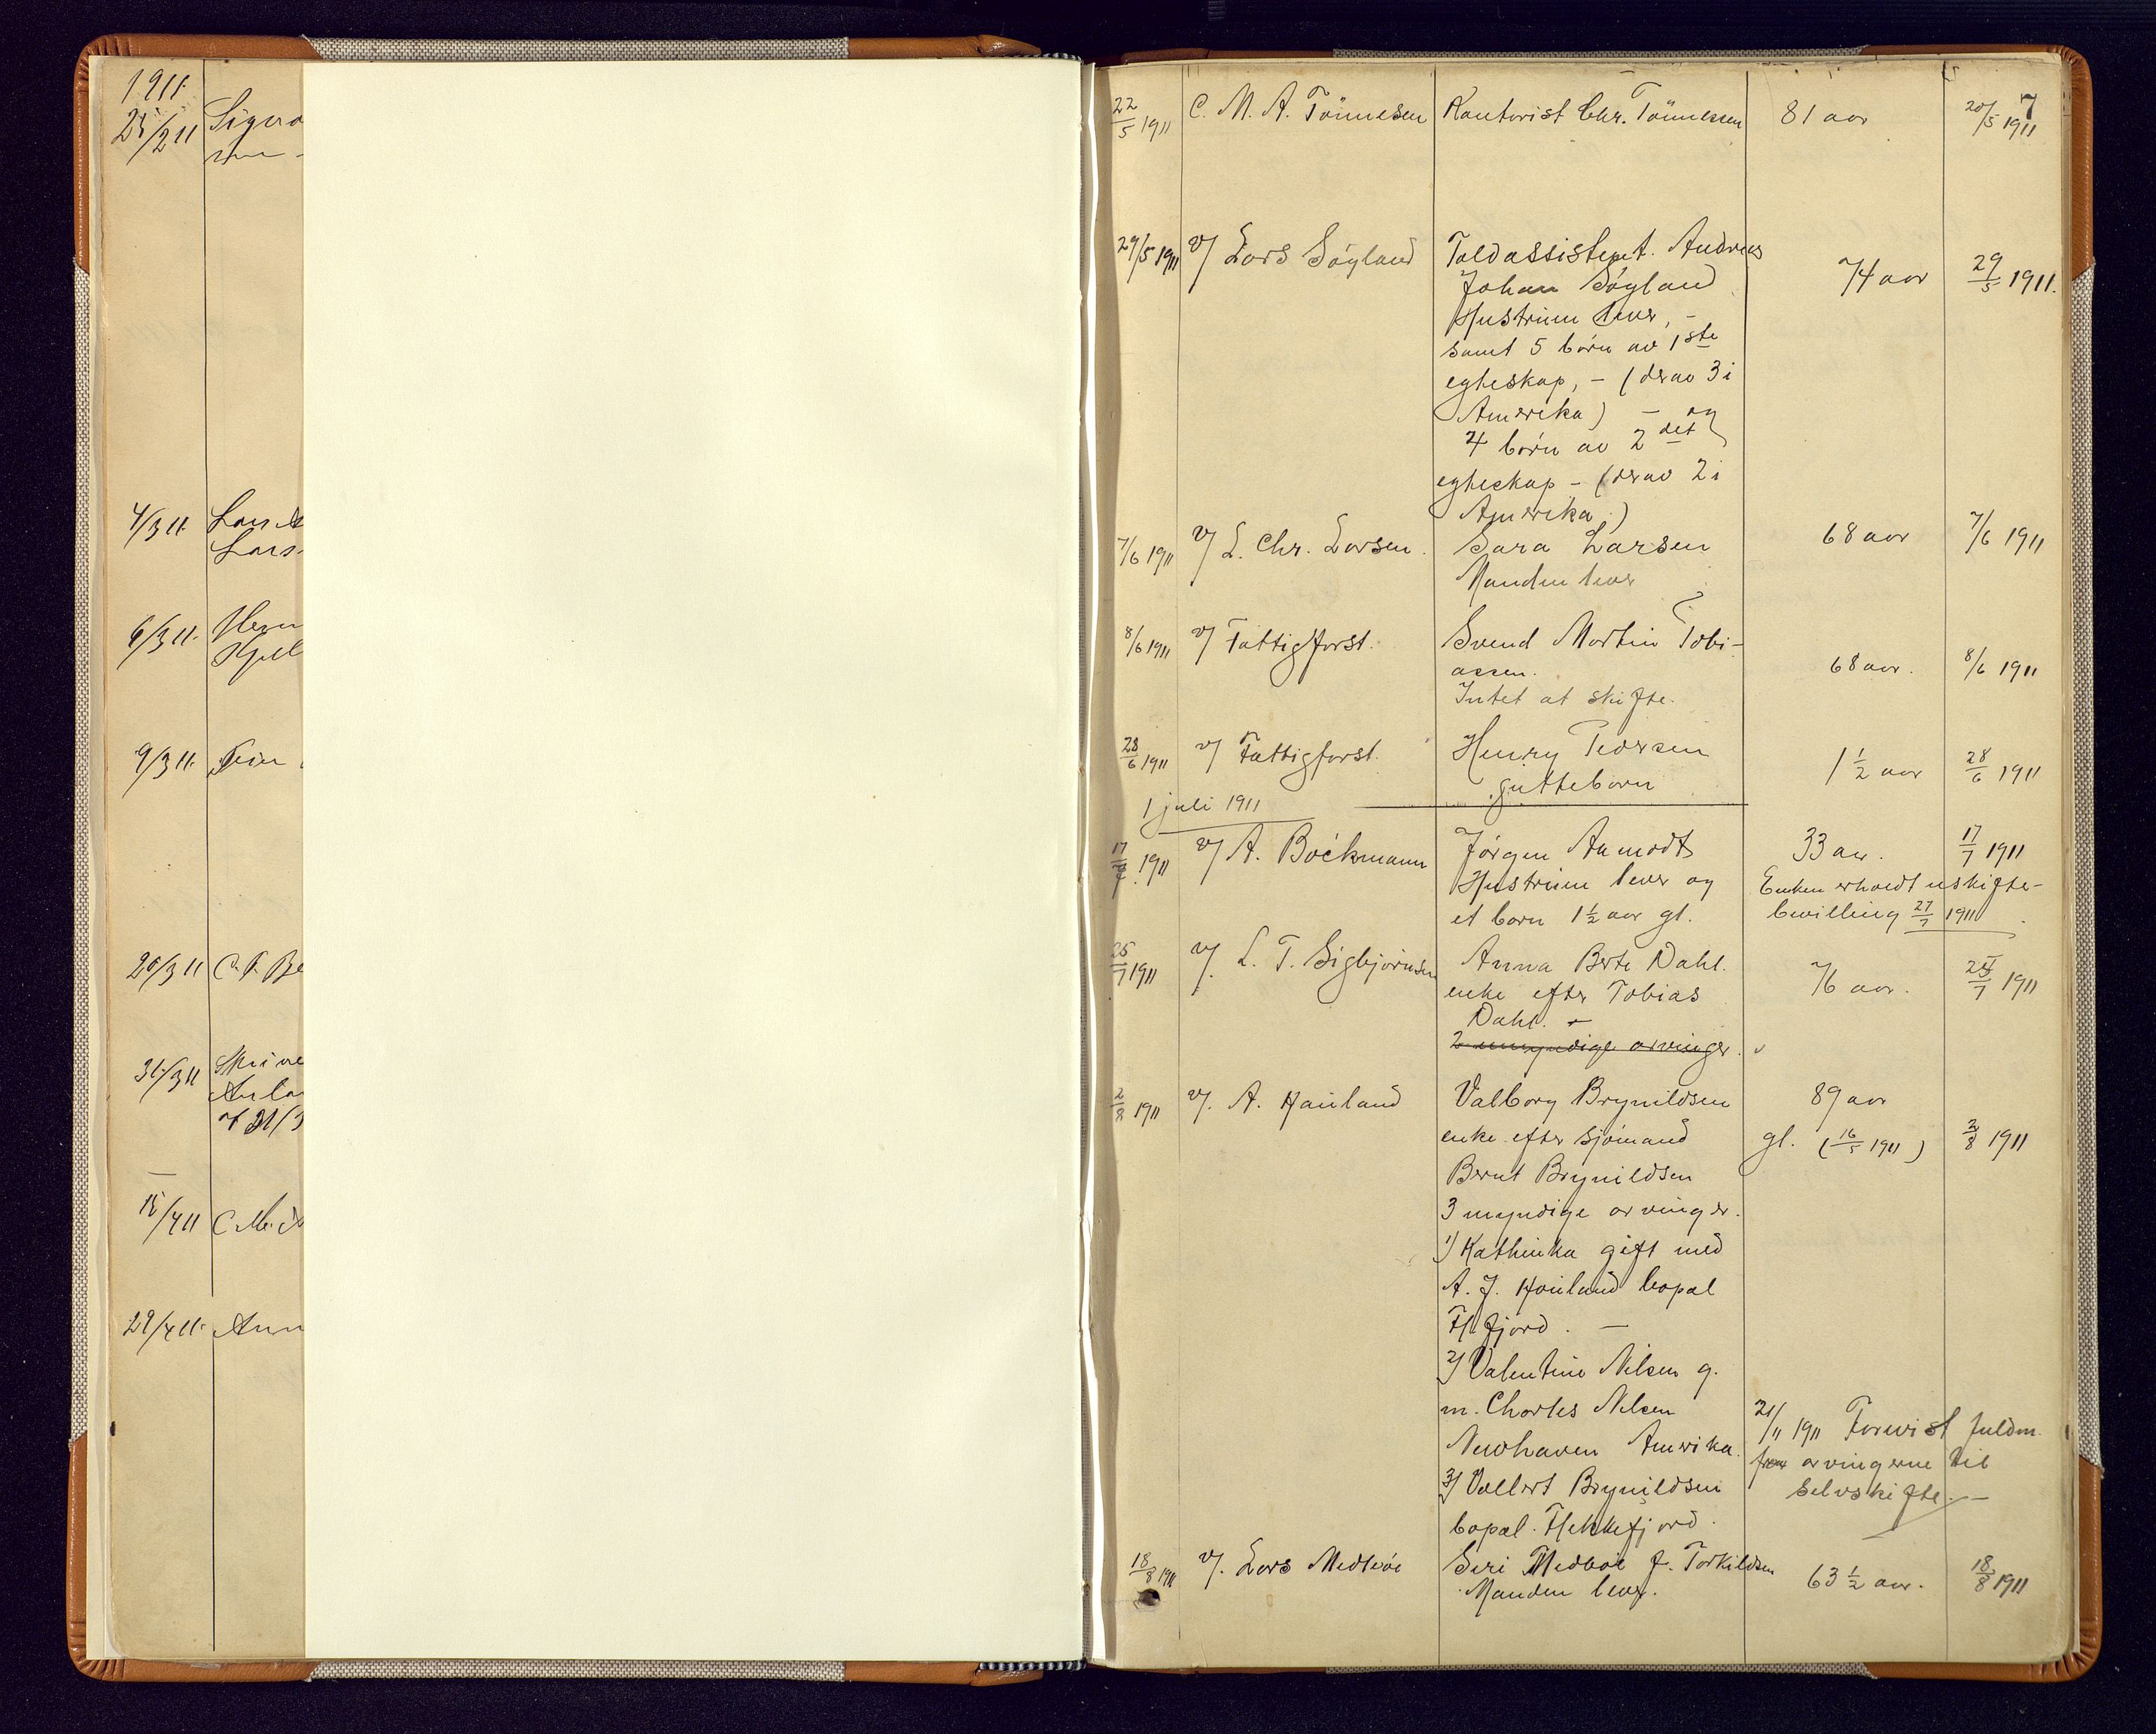 1911
25/2 11 Signa
4/3 11. Lars A
Lars
6/3 11. Herm
Hjel
9/3 11.
20/3 11 C. F. Be
31/3 11
Anla
af 31/3
18/4 11 C. M.
29/4 11. Ann
7
22/5 1911 C. M. A. Tönnesen Kontorist Chr. Tönnessen 81 aar 20/5 1911
29/5 1911 v/ Lars Søyland Toldassistent. Andreas
Johan Søyland 74 aar 29/5 1911.
Hustruen lever, -
samt 5 børn av 1ste
egteskap, - (derav 3 i
Amerika) - og
4 børn av 2det
egteskap - (derav 2 i
Amerika.)
7/6 1911 v/ L. Chr. Larsen. Sara Larsen 68 aar 7/6 1911
Manden lever
8/6 1911 v/ Fattigforst. Svend Martin Tobi-
assen. 68 aar. 8/6 1911
Intet at skifte.
28/6 1911 v/ Fattigforst. Henry Pedersen
guttebarn 1 1/2 aar 28/6 1911
1 juli 1911
17/7 1911 v/ A. Bøckmann Jørgen Aamodt 33 aar. 17/7 1911
Hustruen lever og Enken erholdt uskifte-
et barn 1 1/2 aar gl. bevilling 27/7 1911
25/7 1911 v/. L. T. Sigbjørnsen Anna Berte Dahl.
enke efter Tobias 76 aar. 25/7 1911
Dahl. -
2 umyndige arvinger.
2/8 1911 v/. A. Hauland Valborg Brynildsen 89 aar
enke efter sjømand gl. (16/5 1911) 2/8 1911
Bernt Brynildsen
3 myndige arvinger.
1/ Kathinka gift med
A. J. Hauland bopæl
Fl.fjord. -
2/ Valentine Nilsen g.
m. Charles Nilsen 21/11 1911 Forevist fuldm.
Newhaven Amerika. fra arvingerne til
3/ Vallert Brynildsen selvskifte. -
bopæl. Flekkefjord.
18/8 1911 v/. Lars Medbøe Seri Medbøe f. Torkildsen 63 1/2 aar. 18/8 1911
Manden lever.